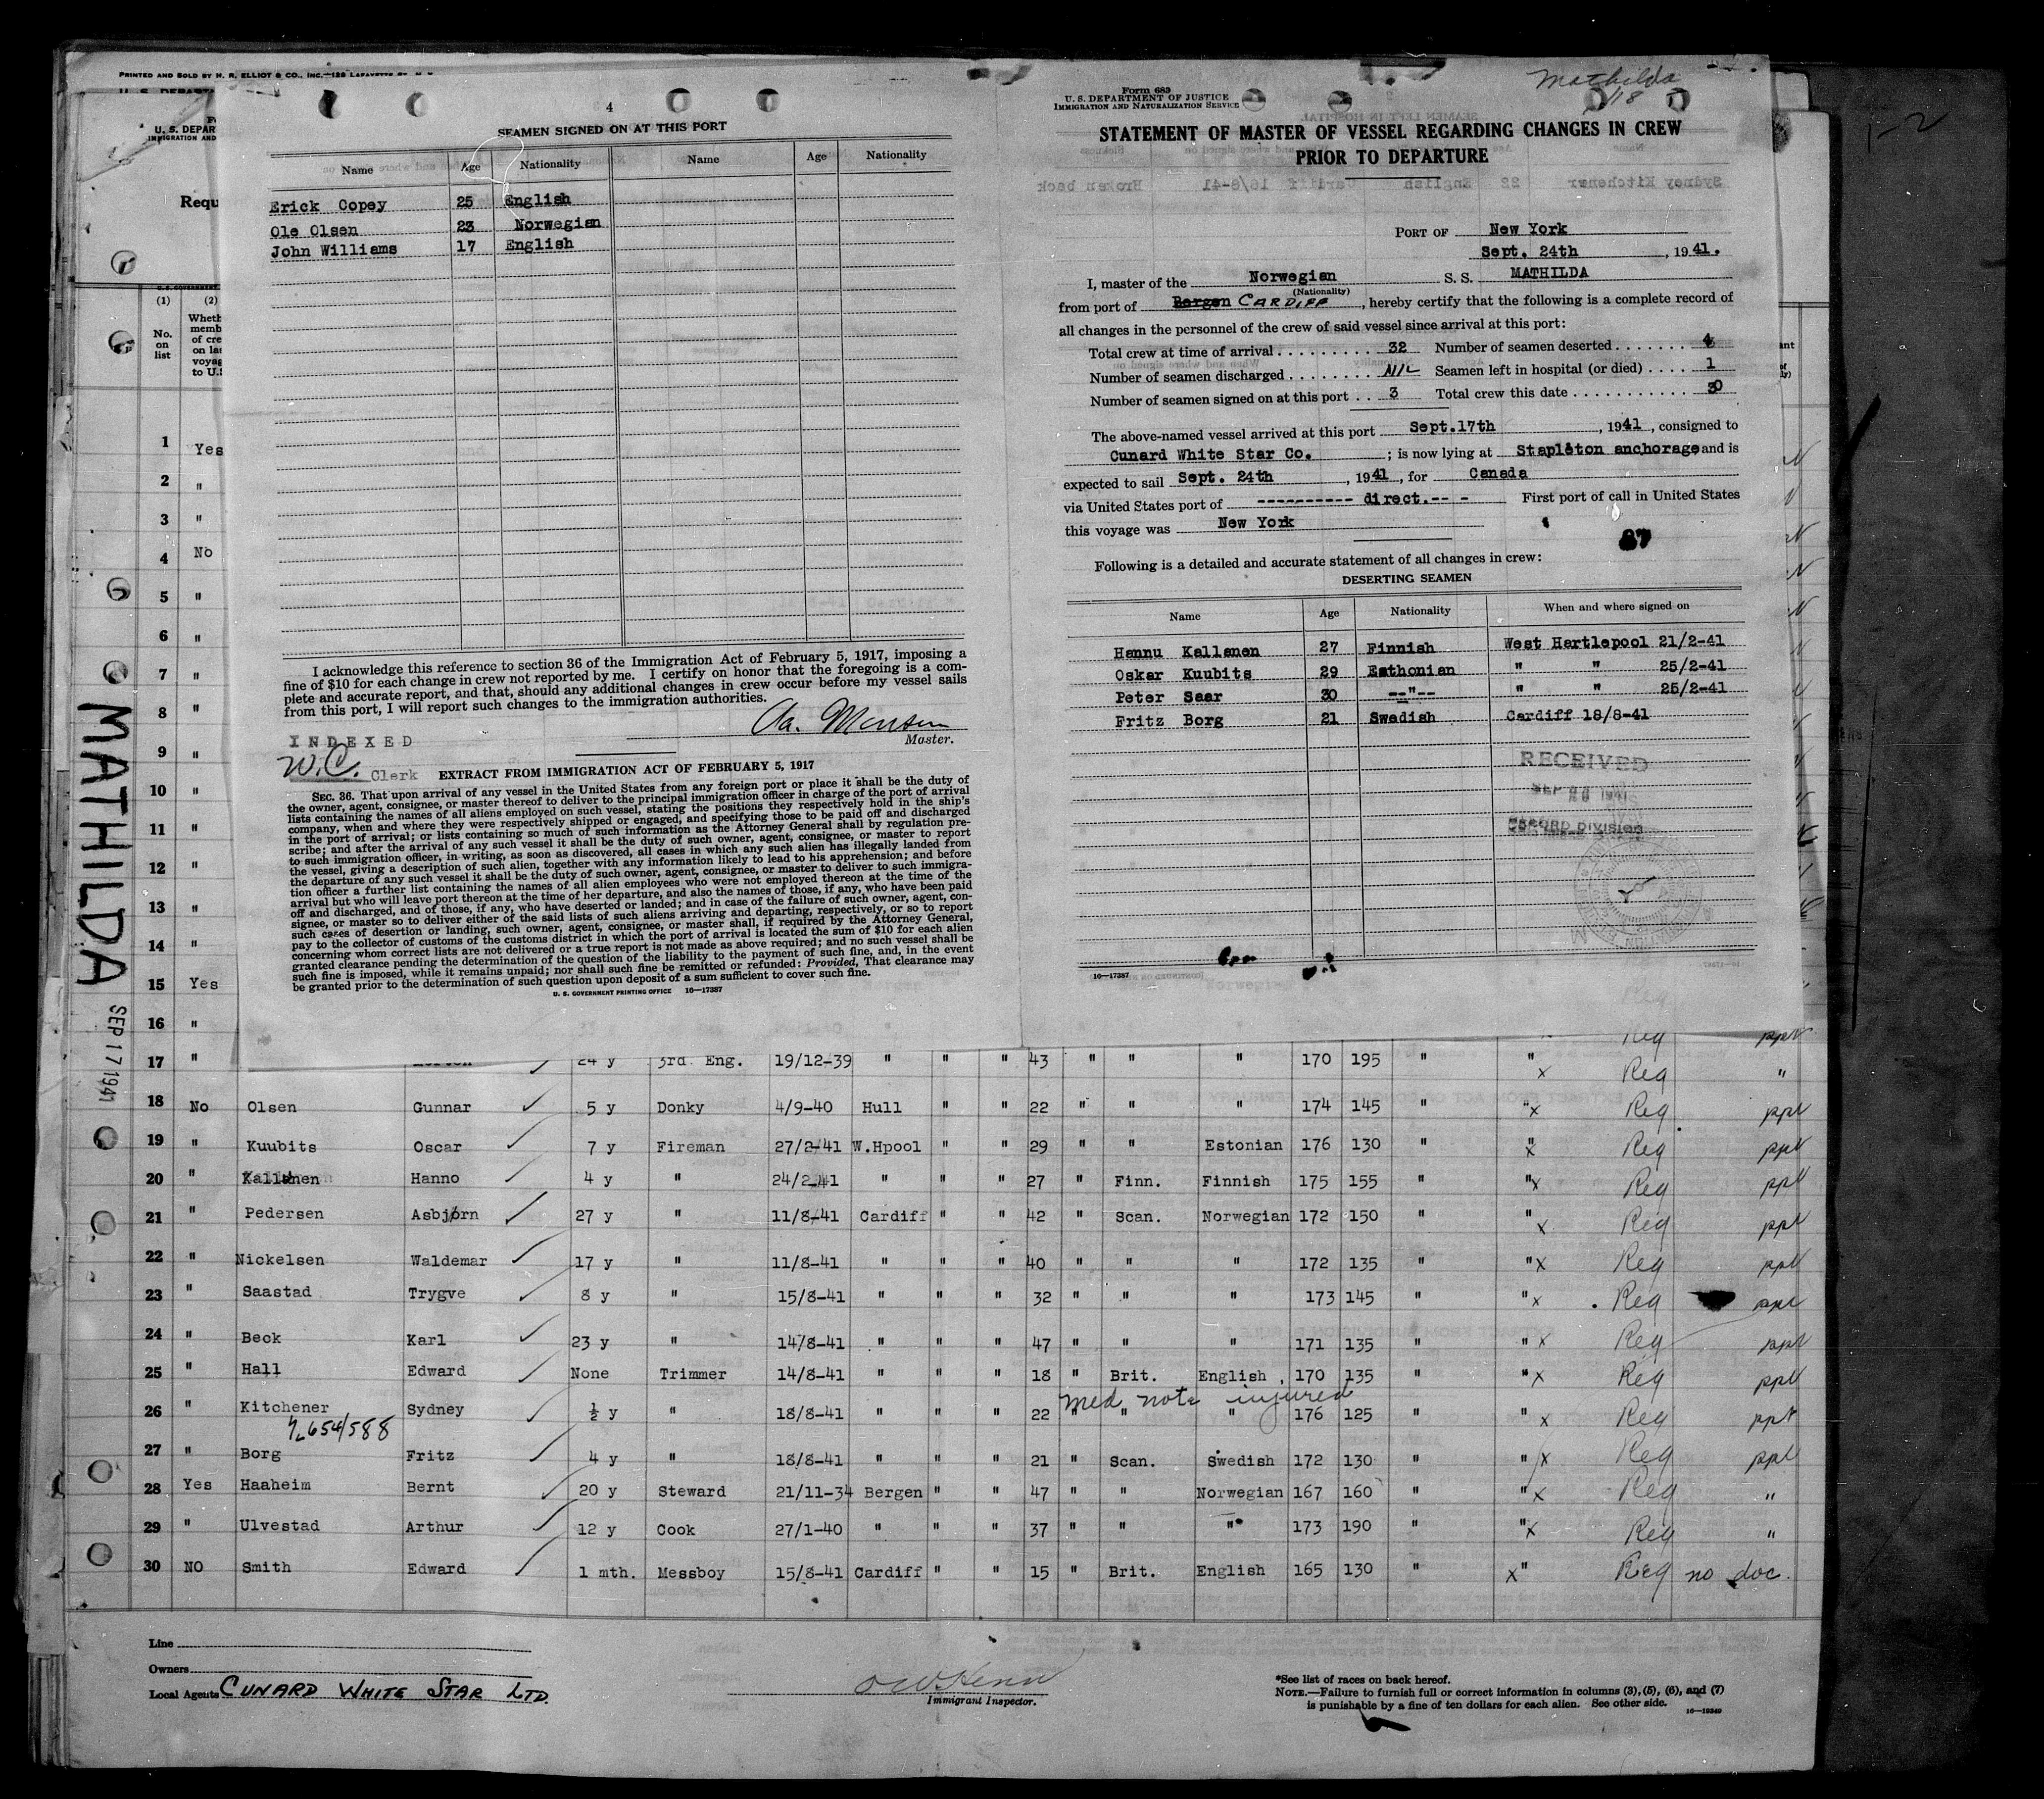 PRINTED AND SOLD BY H. R. ELLIOT & CO., INC.—128 LAFAYETTE ST.
U. S. DEPAR
IMMIGRATION AND
Requ
(1) (2)
No. on list
Wheth
memb
of cre
on las
voyag
to U.S
4
SEAMEN SIGNED ON AT THIS PORT
Name Age Nationality Name Age Nationality
Erick Copey 25 English
Ole Olsen 23 Norwegian
John Williams 17 English
I acknowledge this reference to section 36 of the Immigration Act of February 5, 1917, imposing a
fine of $10 for each change in crew not reported by me. I certify on honor that the foregoing is a com-
plete and accurate report, and that, should any additional changes in crew occur before my vessel sails
from this port, I will report such changes to the immigration authorities.
Master.
INDEXED
W.C. Clerk
EXTRACT FROM IMMIGRATION ACT OF FEBRUARY 5, 1917
SEC. 36. That upon arrival of any vessel in the United States from any foreign port or place it shall be the duty of
the owner, agent, consignee, or master thereof to deliver to the principal immigration officer in charge of the port of arrival
lists containing the names of all aliens employed on such vessel, stating the positions they respectively hold in the ship's
company, when and where they were respectively shipped or engaged, and specifying those to be paid off and discharged
in the port of arrival; or lists containing so much of such information as the Attorney General shall by regulation pre-
scribe; and after the arrival of any such vessel it shall be the duty of such owner, agent, consignee, or master to report
to such immigration officer, in writing, as soon as discovered, all cases in which any such alien has illegally landed from
the vessel, giving a description of such alien, together with any information likely to lead to his apprehension; and before
the departure of any such vessel it shall be the duty of such owner, agent, consignee, or master to deliver to such immigra-
tion officer a further list containing the names of all alien employees who were not employed thereon at the time of the
arrival but who will leave port thereon at the time of her departure, and also the names of those, if any, who have been paid
off and discharged, and of those, if any, who have deserted or landed; and in case of the failure of such owner, agent, con-
signee, or master so to deliver either of the said lists of such aliens arriving and departing, respectively, or so to report
such cases of desertion or landing, such owner, agent, consignee, or master shall, if required by the Attorney General,
pay to the collector of customs of the customs district in which the port of arrival is located the sum of $10 for each alien
concerning whom correct lists are not delivered or a true report is not made as above required; and no such vessel shall be
granted clearance pending the determination of the question of the liability to the payment of such fine, and, in the event
such fine is imposed, while it remains unpaid; nor shall such fine be remitted or refunded: Provided, That clearance may
be granted prior to the determination of such question upon deposit of a sum sufficient to cover such fine.
U. S. GOVERNMENT PRINTING OFFICE 16—17387
Mathilda
Form 689
U. S. DEPARTMENT OF JUSTICE
IMMIGRATION AND NATURALIZATION SERVICE
STATEMENT OF MASTER OF VESSEL REGARDING CHANGES IN CREW
PRIOR TO DEPARTURE
PORT OF New York
Sept. 24th, 1941.
I, master of the Norwegian S. S. MATHILDA
(Nationality)
from port of Bergen CARDIFF, hereby certify that the following is a complete record of
all changes in the personnel of the crew of said vessel since arrival at this port:
Total crew at time of arrival 32 Number of seamen deserted 4
Number of seamen discharged NIL Seamen left in hospital (or died) 1
Number of seamen signed on at this port 3 Total crew this date 30
The above-named vessel arrived at this port Sept.17th, 1941, consigned to
Cunard White Star Co. ; is now lying at Stapleton anchorage and is
expected to sail Sept. 24th, 1941, for Canada
via United States port of ---------- direct.-- - First port of call in United States
this voyage was New York
27
Following is a detailed and accurate statement of all changes in crew:
DESERTING SEAMEN
Name Age Nationality When and where signed on
Hannu Kallanen 27 Finnish West Hartlepool 21/2-41
Oskar Kuubits 29 Esthonian " " 25/2-41
Peter Saar 30 --"-- " " 25/2-41
Fritz Borg 21 Swedish Cardiff 18/8-41
RECEIVED
RECORD DIVISION
16—17387
MATHILDA
SEP 17 1941
1 Yes
2 "
3 "
4 No
5 "
6 "
7 "
8 "
9 "
10 "
11 "
12 "
13 "
14 "
15 Yes
16 "
17 " 24 y 3rd Eng. 19/12-39 " " " 43 " " " 170 195 " " x Reg "
18 No Olsen Gunnar 5 y Donky 4/9-40 Hull " " 22 " " " 174 145 " "x Reg ppt
19 " Kuubits Oscar 7 y Fireman 27/2-41 W.Hpool " " 29 " " Estonian 176 130 " "x Reg ppt
20 " Kallanen Hanno 4 y " 24/2-41 " " " 27 " Finn. Finnish 175 155 " "x Reg ppt
21 " Pedersen Asbjørn 27 y " 11/8-41 Cardiff " " 42 " Scan. Norwegian 172 150 " " x Reg ppt
22 " Nickelsen Waldemar 17 y " 11/8-41 " " " 40 " " " 172 135 " "x Reg ppt
23 " Saastad Trygve 8 y " 15/8-41 " " " 32 " " " 173 145 " "x Reg ppt
24 " Beck Karl 23 y " 14/8-41 " " " 47 " " " 171 135 " "x Reg ppt
25 " Hall Edward None Trimmer 14/8-41 " " " 18 " Brit. English 170 135 " "x Reg ppt
med note injured
26 " Kitchener Sydney ½ y " 18/8-41 " " " 22 " " " 176 125 " " x Reg ppt
654/588
27 " Borg Fritz 4 y " 18/8-41 " " " 21 " Scan. Swedish 172 130 " "x Reg ppt
28 Yes Haaheim Bernt 20 y Steward 21/11-34 Bergen " " 47 " " Norwegian 167 160 " "x Reg "
29 " Ulvestad Arthur 12 y Cook 27/1-40 " " " 37 " " " 173 190 " "x Reg "
30 NO Smith Edward 1 mth. Messboy 15/8-41 Cardiff " " 15 " Brit. English 165 130 " x" Reg no doc.
Line
Owners
Local Agents CUNARD WHITE STAR LTD.
Immigrant Inspector.
*See list of races on back hereof.
NOTE.—Failure to furnish full or correct information in columns (3), (5), (6), and (7)
is punishable by a fine of ten dollars for each alien. See other side.
16—19349